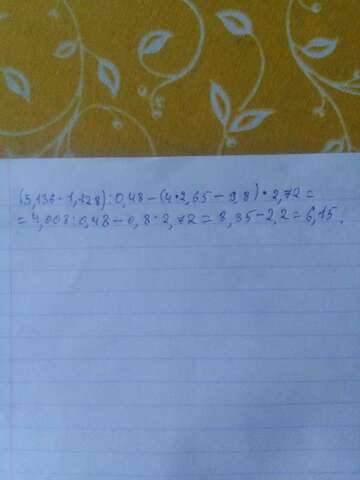 (5,136-1,128):0,48-(4*2,65-9,8)*2,72=
=4,008:0,48-0,8*2,72=8,35-2,2=6,15.